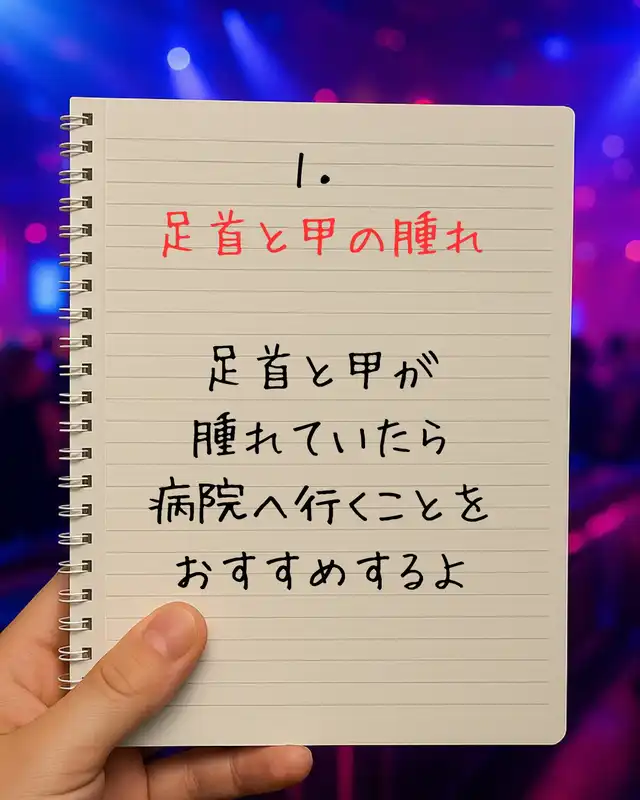 1.
足首と甲の腫れ
足首と甲が
腫れていたら
病院へ行くことを
おすすめするよ